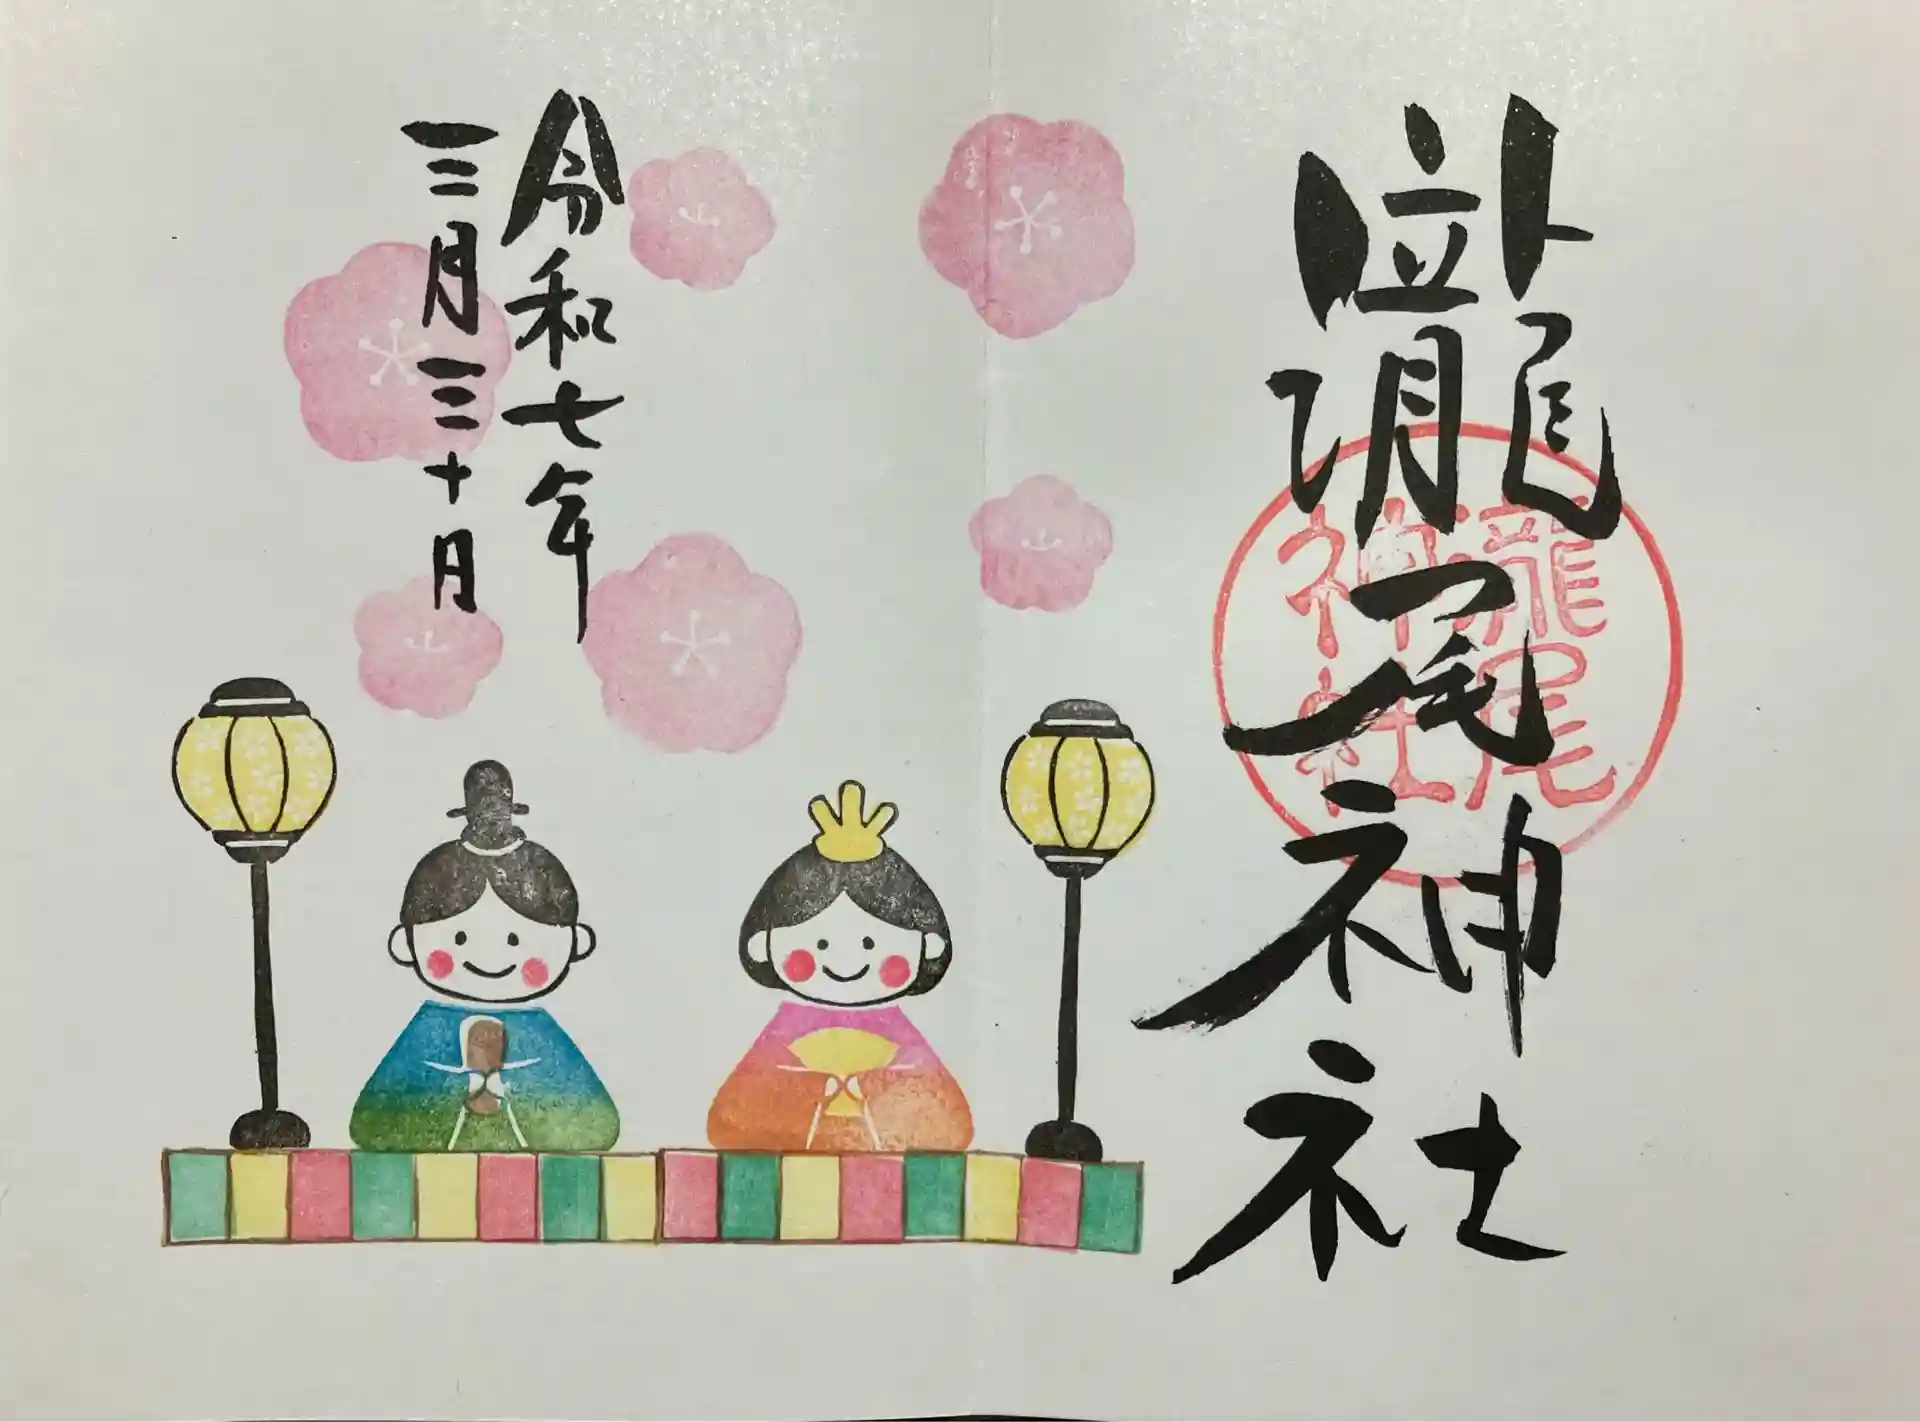 瀧尾神社
瀧尾
神社
令和七年
三月三十日